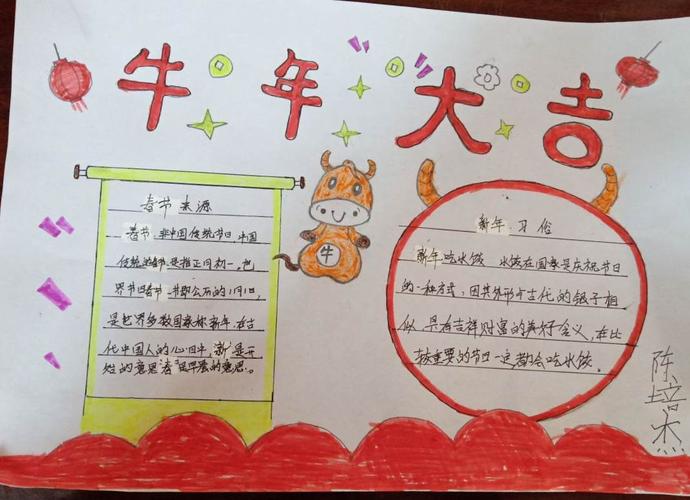 牛年大吉
春节来源
春节,非中国传统节日,中国
传统春节是指正月初一,也
界节日春节一节即公历的1月1日,
是世界多数国家称新年,在古
代中国人的心目中,新是开
姓的意思春是早晨的意思。
新年习俗
新年吃水饺 水饺在国家是庆祝节日
的一种方式,因其外形与古代的银子相
似,具有吉祥财富的美好含义,在比
较重要的节日一定都会吃水饺.
牛
陈培杰